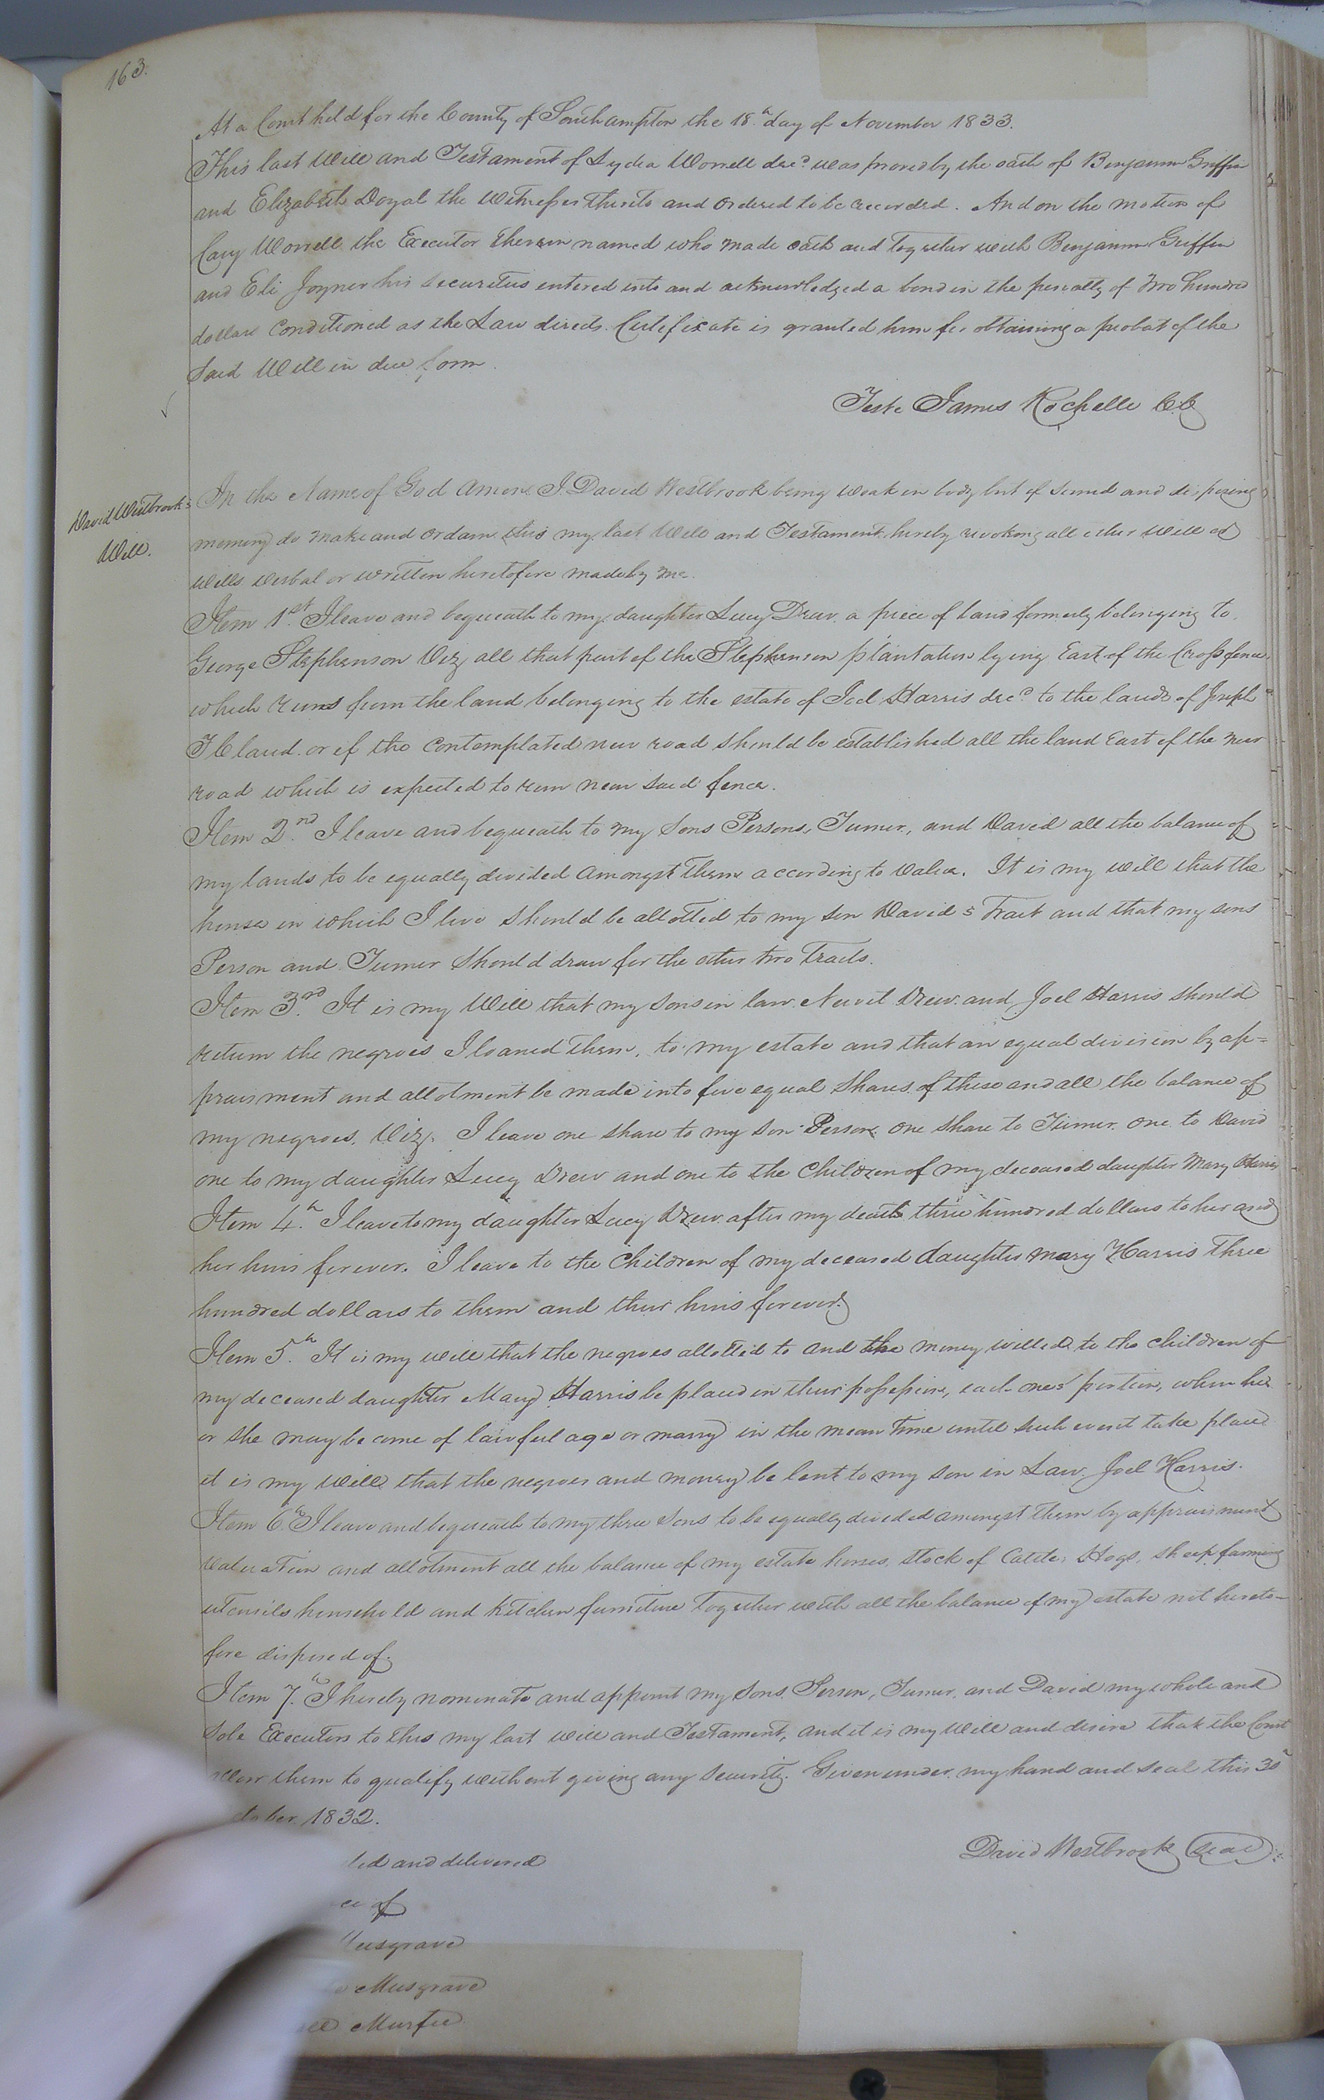 163.
At a Court held for the County of Southampton the 18.th day of November 1833.
This last Will and Testament of Lydia Worrell decd was proved by the oath of Benjamin Griffin
and Elizabeth Doyal the Witnesses thereto and ordered to be recorded. And on the motion of
Cary Worrell the Executor therein named who made oath and together with Benjamin Griffin
and Eli Joyner his securities entered into and acknowledged a bond in the penalty of two hundred
dollars Conditioned as the Law directs. Certificate is granted him for obtaining a probat of the
Said Will in due form.
Teste James Rochelle CC
David Westbrook's
Will.
In the Name of God Amen I David Westbrook being weak in body but of sound and disposing
memory do make and ordain this my last Will and Testament hereby revoking all other Will or
wills verbal or written heretofore made by me.
Item 1st. I leave and bequeath to my daughter Lucy Drew a piece of land formerly belonging to
George Stephenson Viz, all that part of the Stephenson plantation lying East of the Cross fence
which runs from the land belonging to the estate of Joel Harris decd to the lands of Joseph
T Cland. or if the contemplated new road should be established all the land East of the new
road which is expected to run near said fence.
Item 2nd I leave and bequeath to my sons Persons, Turner, and David all the balance of
my lands to be equally divided amongst them according to value. It is my will that the
house in which I live should be allotted to my son David's Tract and that my sons
Person and Turner should draw for the other two Tracts.
Item 3rd. It is my Will that my sons in law Newit Drew and Joel Harris should
return the negroes I loaned them, to my estate and that an equal division by ap=
praisment and allotment be made into five equal shares of these and all the balance of
my negroes. Viz. I leave one share to my son Person one share to Turner one to David
one to my daughter Lucy Drew and one to the children of my deceased daughter Mary Harris
Item 4.th I leave to my daughter Lucy Drew after my death three hundred dollars to her and
her heirs forever. I leave to the children of my deceased daughter Mary Harris three
hundred dollars to them and their heirs forever.
Item 5.th It is my will that the negroes allotted to and the money willed to the children of
my deceased daughter Mary Harris be placed in their possession, each ones portion, when he
or she may become of lawful age or marry in the mean time until such event take place
it is my Will that the negroes and money be lent to my son in Law Joel Harris.
Item 6.th I leave and bequeath to my three sons to be equally divided amongst them by appraisment
valuation and allotment all the balance of my estate horses, stock of Cattle, Hogs, sheep farming
utensils household and kitchen furniture together with all the balance of my estate not hereto-
fore disposed of.
Item 7.th I hereby nominate and appoint my sons Person, Turner, and David my whole and
sole Executors to this my last will and Testament, and it is my Will and desire that the Court
allow them to qualify without giving any security. Given under my hand and seal this 3d
tober 1832.
David Westbrook (Seal)
led and delivered
ce of
Musgrave
Musgrave
ell Murfee